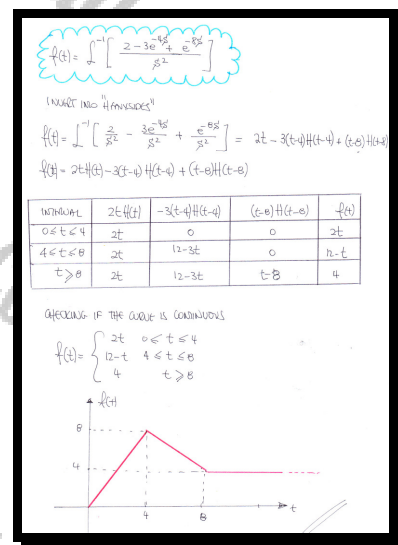 f(t) = ℒ⁻¹[ (2 - 3e^{-4s} + e^{-8s}) / s² ]
INVERT INTO "HEAVISIDES"
f(t) = ℒ⁻¹[ 2/s² - 3e^{-4s}/s² + e^{-8s}/s² ] = 2t - 3(t-4)H(t-4) + (t-8)H(t-8)
f(t) = 2tH(t) - 3(t-4)H(t-4) + (t-8)H(t-8)
INTERVAL 2tH(t) -3(t-4)H(t-4) (t-8)H(t-8) f(t)
0≤t≤4 2t 0 0 2t
4≤t≤8 2t 12-3t 0 12-t
t≥8 2t 12-3t t-8 4
CHECKING IF THE CURVE IS CONTINUOUS
f(t) = { 2t 0≤t≤4
12-t 4≤t≤8
4 t≥8
f(t)
8
4
t
4 8